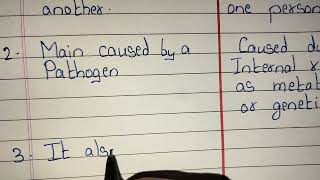 another.
one person
2. Main caused by a
Pathogen
Caused du
Internal
as metab
or geneti
3. It als